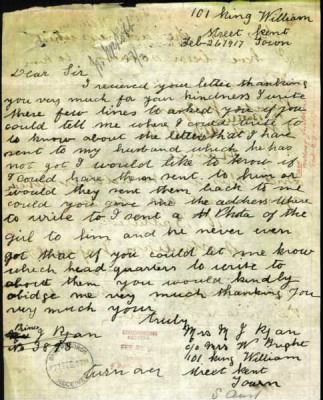 101 King William
Street Kent
Feb - 26 1917 Town
Dear Sir
I received your letter thanking
you very much for your kindness I write
these few lines to asked you if you
could tell me where I could
to know about the letter that I have
sent to my husband which he has
not got I would like to know if
I could have them sent to him or
would they send them back to me
could you give me the address where
to write to I sent a Photo of the
girl to him and he never even
got that if you could let me know
which head quarters to write to
about them you would kindly
abidge me very much thanking you
very much your
truly
Ryan
Mrs M J Ryan
c/o Mrs W Bright
101 King William
street Kent
Town
S Aust
turn over